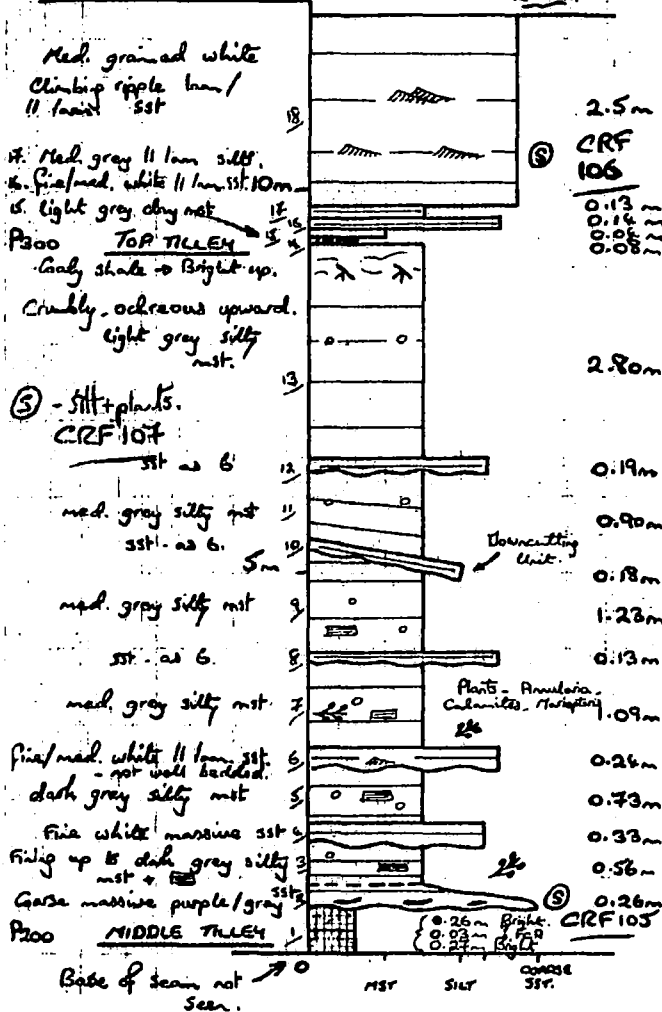 Med. grained white
Climbing ripple lam/
// lamin sst
18
2.5m
S CRF
106
17. Med. grey // lam silts.
16. fine/med. white // lam. sst. 10m
15. light grey clay mst
17
16
15
14
0.13m
0.14m
0.08m
P300 TOP TILLEY
Coaly shale → Bright up.
Crumbly, ochreous upward.
light grey silty
mst.
13
2.80m
S - silt + plants.
CRF 107
sst as 6
12
0.19m
med. grey silty mst
11
0.90m
sst - as 6.
10
Downcutting
Unit.
5m
0.18m
med. grey silty mst
9
1.23m
sst - as 6.
8
0.13m
med. grey silty mst
7
Plants - Annularia.
Calamites, Mariopteris
1.09m
fine/med. white // lam. sst.
- not well bedded.
6
0.24m
dark grey silty mst
5
0.73m
Fine white massive sst 4
0.33m
Finig up to dark grey silty 3
mst +
0.56m
Coarse massive purple/grey sst
S 0.26m
CRF 105
P200 MIDDLE TILLEY
1
0.26m Bright.
0.03m
0.27m Bright
Base of seam not
seen.
0
MST SILT COARSE
SST.